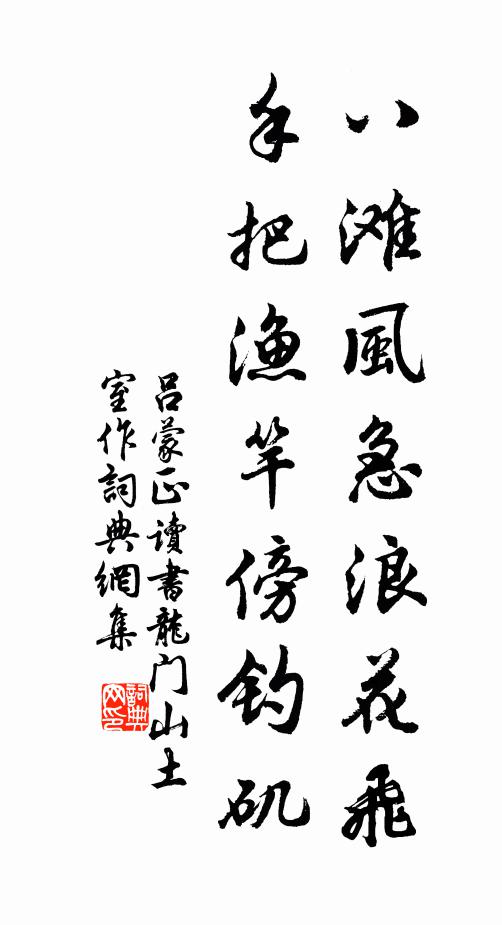 八滩風急浪花飛
手把漁竿傍釣矶
吕蒙正讀書龍门山土
室作詞典網集
詞典
网印